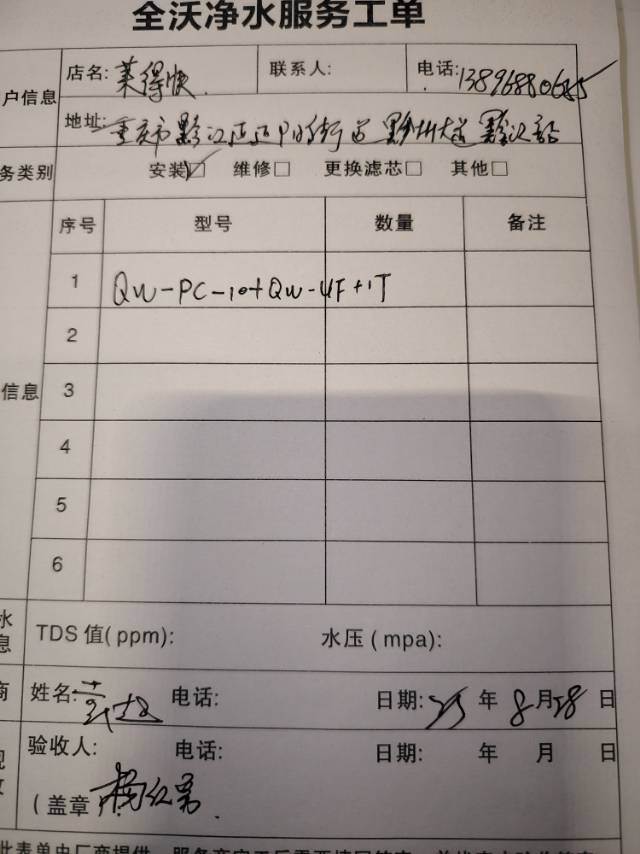 全沃净水服务工单
户信息
店名: 莱得快
联系人:
电话: 13896880685
地址: 重庆市黔江区 街道黔州大道
务类别
安装☑ 维修□ 更换滤芯□ 其他□
序号 型号 数量 备注
1 QW-PC-10+QW-UF+1T
2
信息
3
4
5
6
水
息
TDS 值(ppm): 水压(mpa):
商
姓名: 电话: 日期: 25 年 8 月 28 日
验收人: 电话: 日期: 年 月 日
(盖章
此表单由厂商提供